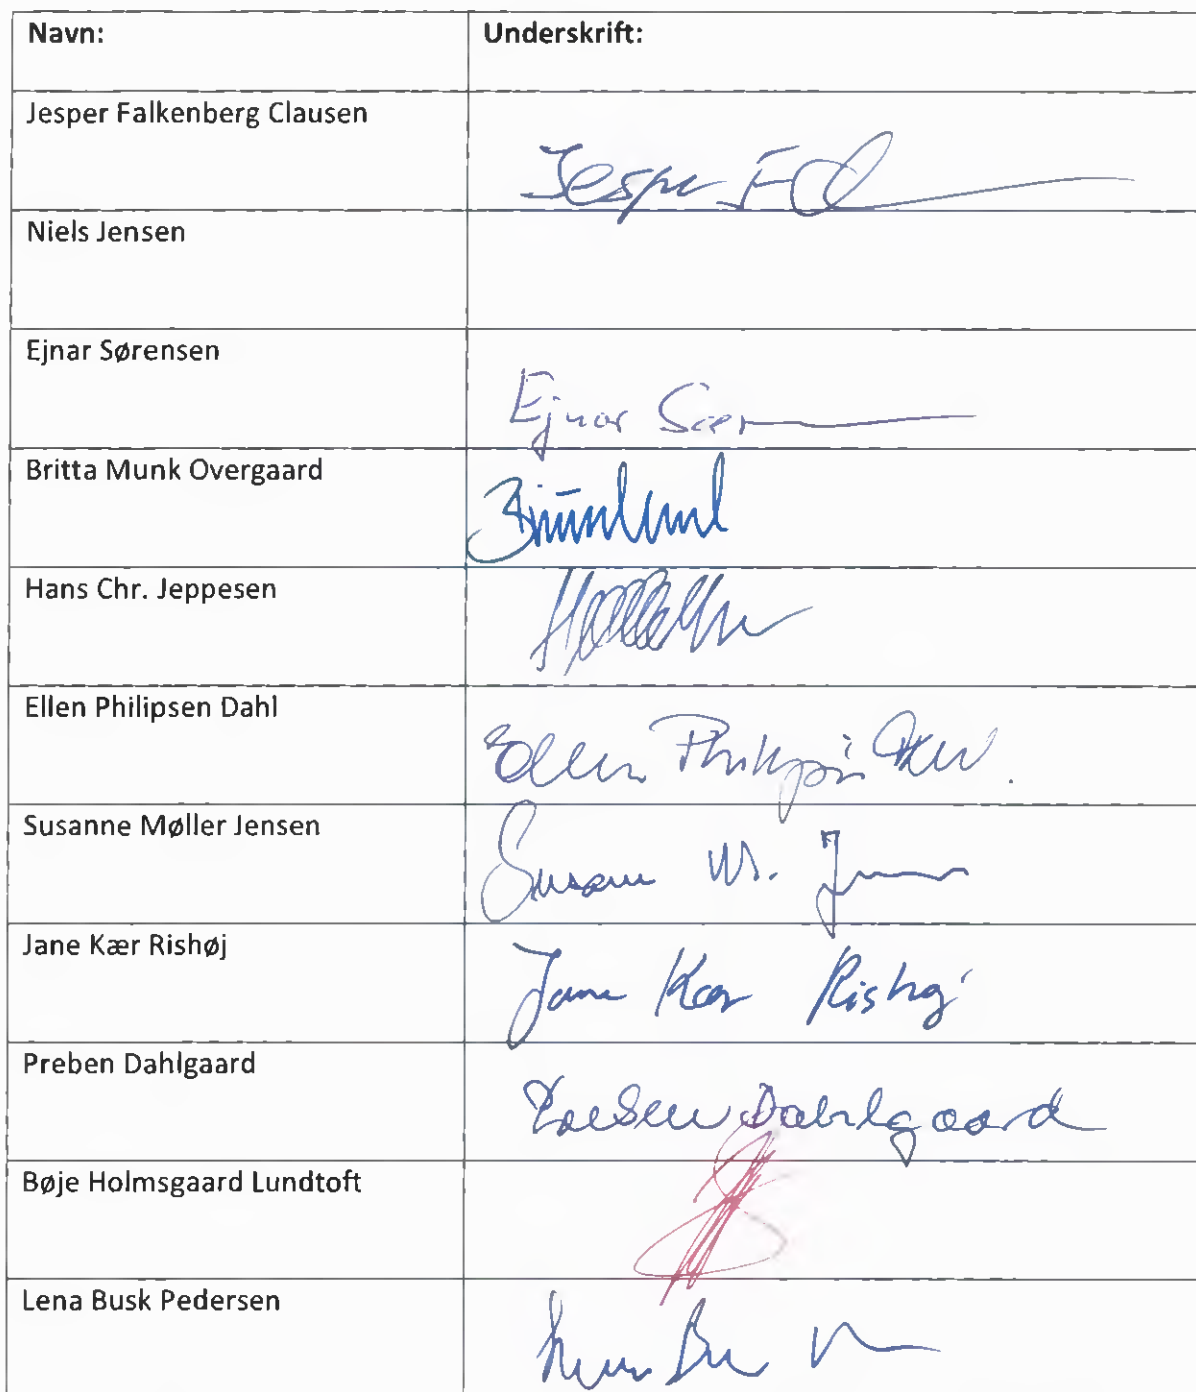 Navn: Underskrift:
Jesper Falkenberg Clausen
Jespe FC
Niels Jensen
Ejnar Sørensen
Ejnar Sør
Britta Munk Overgaard
Hans Chr. Jeppesen
Ellen Philipsen Dahl
Ellen Philipsen Dahl
Susanne Møller Jensen
Susanne M. J
Jane Kær Rishøj
Jane Kær Rishøj
Preben Dahlgaard
Preben Dahlgaard
Bøje Holmsgaard Lundtoft
Lena Busk Pedersen